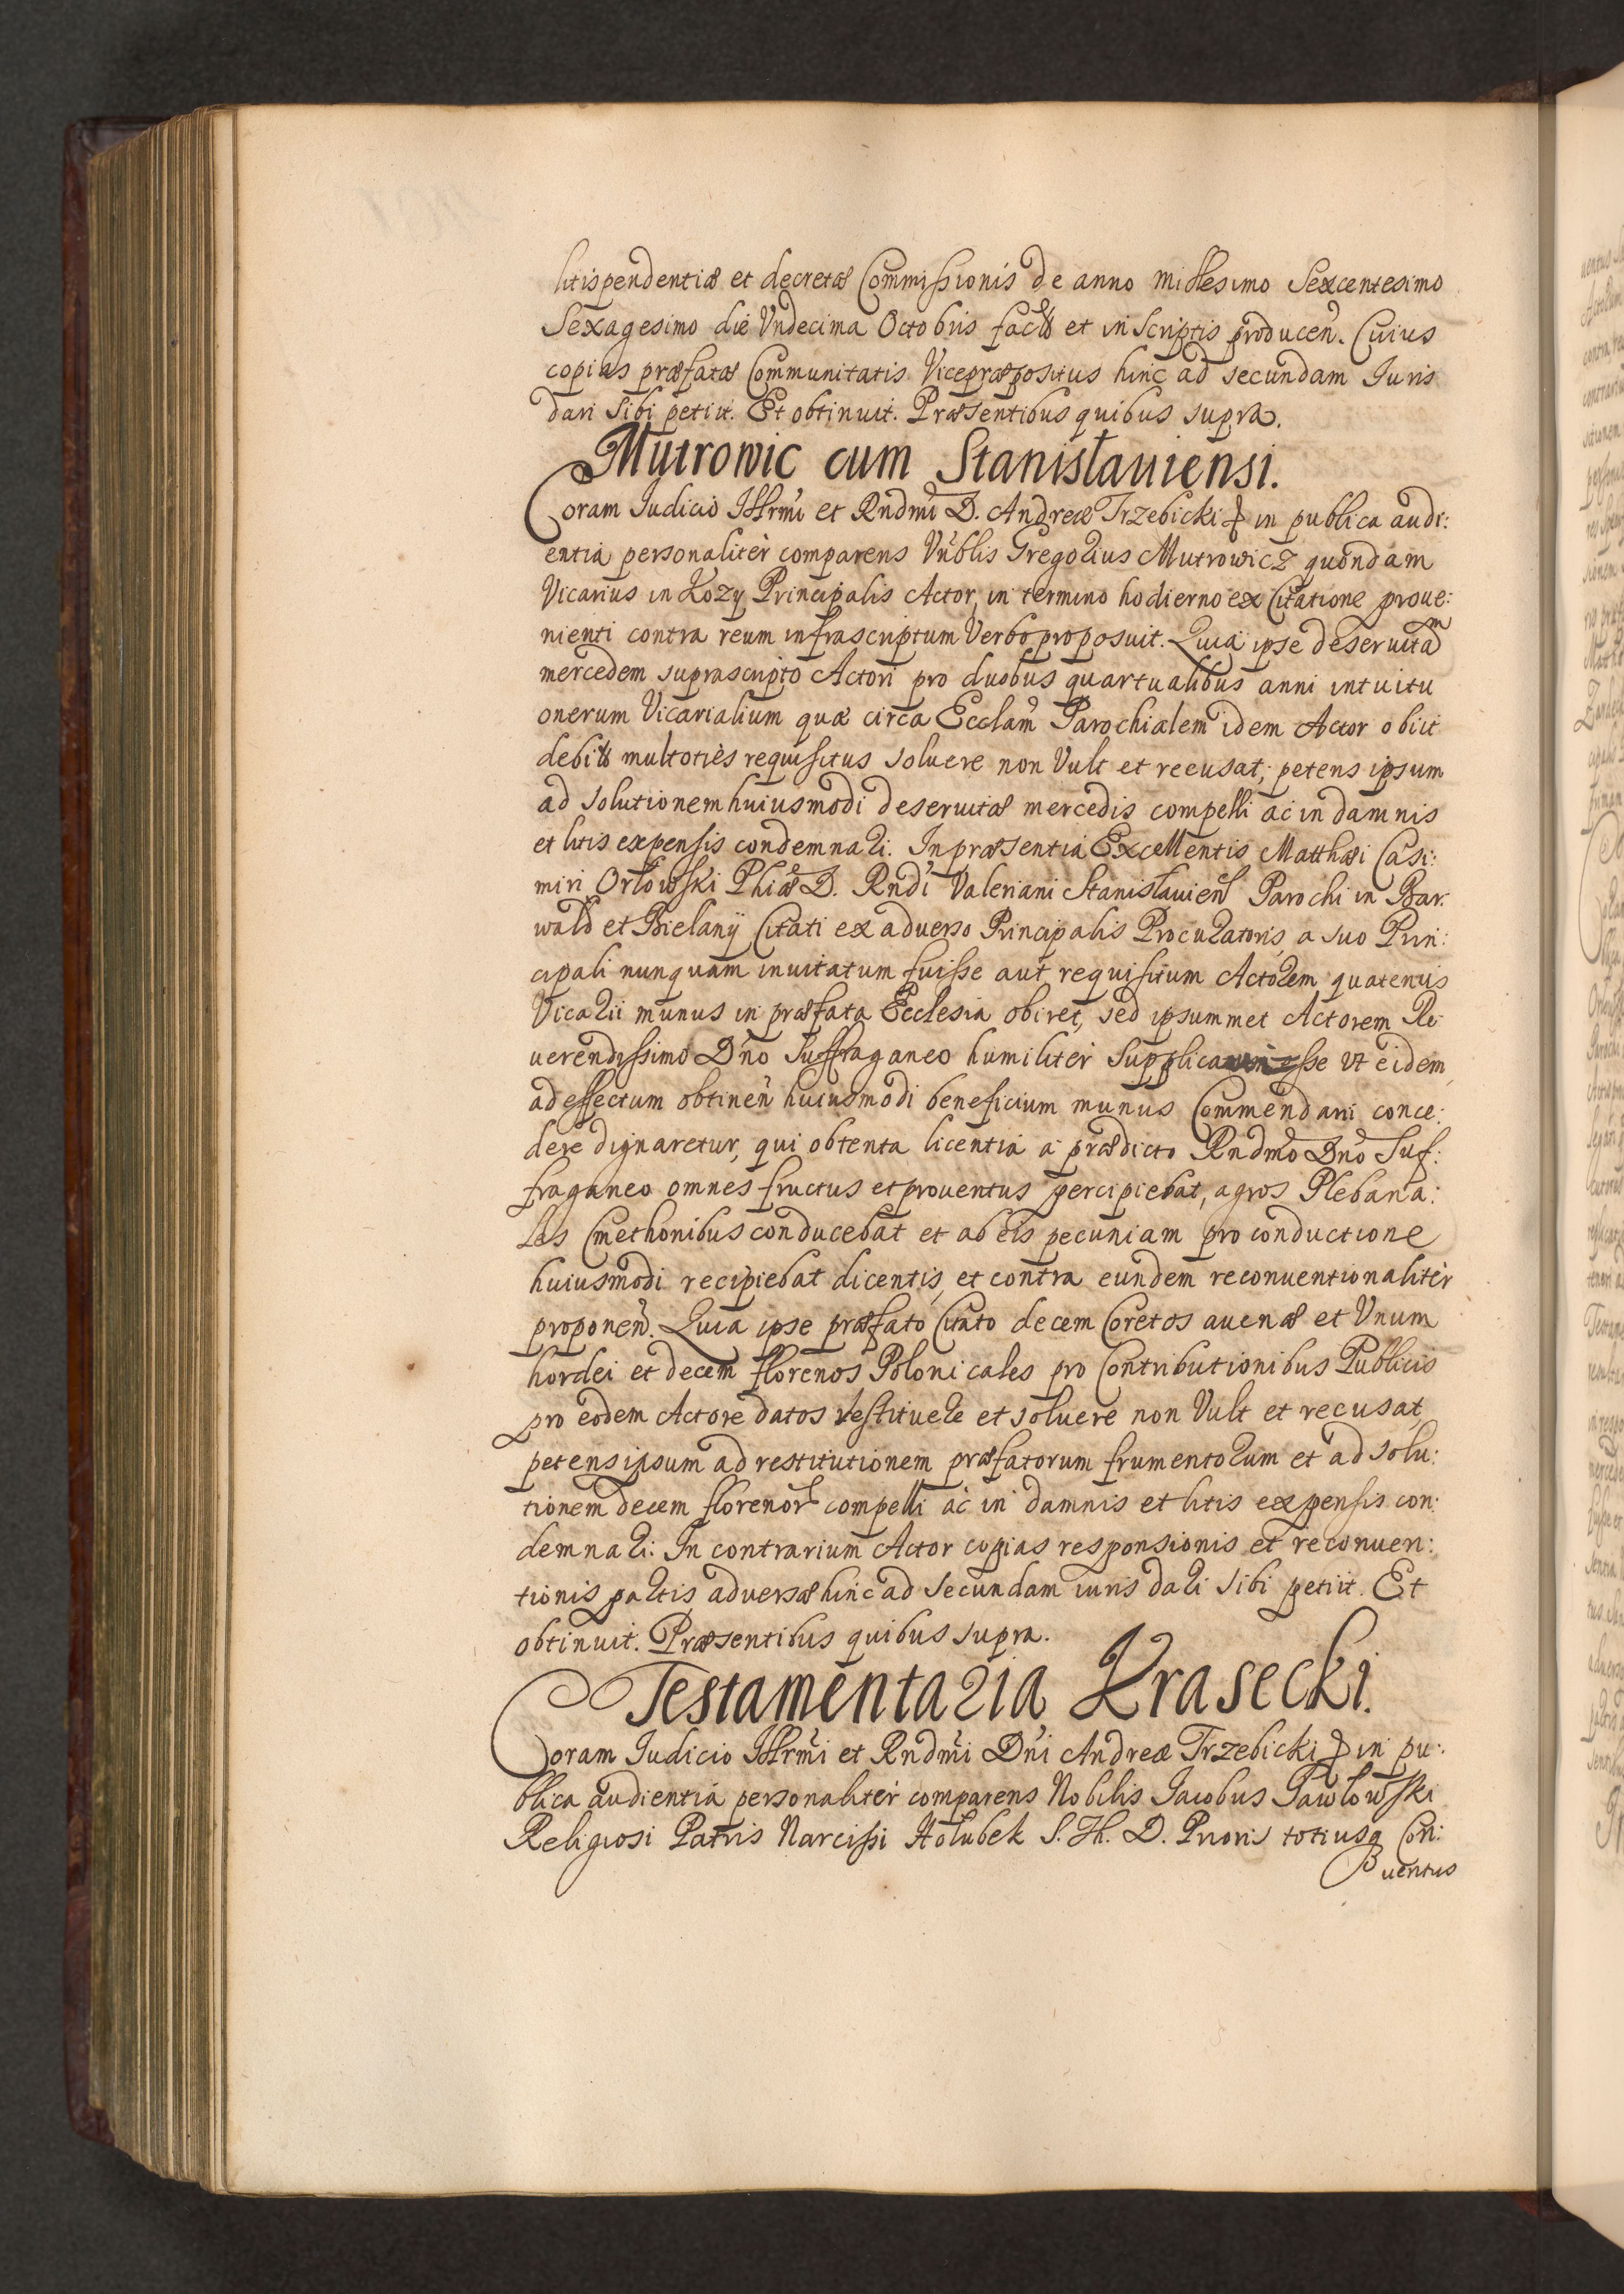 litispendentiæ et decretæ Commissionis de anno Millesimo Sexcentesimo
Sexagesimo die Vndecima Octobris factæ et in Scriptis producen. Cuius
copias præfatæ Communitatis Vicepræpositus hinc ad secundam Iuris
dari sibi petiit. Et obtinuit. Præsentibus quibus supra.
Mutrowic cum Stanislauiensi.
Coram Iudicio Illrmi et Rndmi D. Andreæ Trzebicki in publica audi:
entia personaliter comparens Vnblis Gregorius Mutrowicz quondam
Vicarius in Kozy Principalis Actor, in termino hodierno ex Citatione proue:
nienti contra reum infrascriptum Verbo proposuit. Quia ipse deseruitam
mercedem suprascripto Actori pro duobus quartualibus anni intuitu
onerum Vicarialium quæ circa Ecclam Parochialem idem Actor obiit
debitæ multoties requisitus soluere non Vult et recusat, petens ipsum
ad solutionem huiusmodi deseruitæ mercedis compelli ac in damnis
et litis expensis condemnari. In præsentia Excellentis Matthæi Casi:
miri Orłowski Phiæ D. Rndi Valeriani Stanislauien Parochi in Bar:
wald et Bielany Citati ex aduerso Principalis Procuratoris, a suo Prin:
cipali nunquam inuitatum fuisse aut requisitum Actorem quatenus
Vicarii munus in præfata Ecclesia obiret, sed ipsummet Actorem Re
uerendissimo Dno Suffraganeo humiliter Supplicasse vt eidem
ad effectum obtinen huiusmodi beneficium munus Commendarii conce:
dere dignaretur, qui obtenta licentia a prædicto Rndmo Dno Suf:
fraganeo omnes fructus et prouentus percipiebat, agros Plebana:
les Cmethonibus conducebat et ab eis pecuniam pro conductione
huiusmodi recipiebat dicentis, et contra eundem reconuentionaliter
proponen. Quia ipse præfato Citato decem Coretos auenæ et Vnum
hordei et decem florenos Polonicales pro Contributionibus Publicis
pro eodem Actore datos restituere et soluere non Vult et recusat,
petens ipsum ad restitutionem præfatorum frumentorum et ad solu:
tionem decem florenor compelli ac in damnis et litis expensis con:
demnari: In contrarium Actor copias responsionis et reconuen:
tionis partis aduersæ hinc ad secundam iuris dari sibi petiit. Et
obtinuit. Præsentibus quibus supra.
Testamentaria Krasecki.
Coram Iudicio Illrmi et Rndmi Dni Andreæ Trzebicki in pu:
blica audientia personaliter comparens Nobilis Iacobus Pawłowski
Religiosi Patris Narcissi Hołubek S. Th. D. Prioris totiusq Con:
uentus